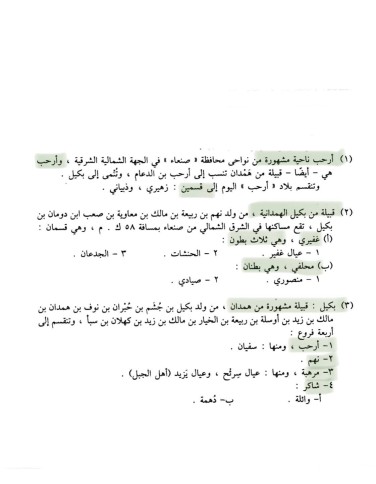 (١) أرحب ناحية مشهورة من نواحى محافظة « صنعاء » في الجهة الشمالية الشرقية ، وأرحب
هي - أيضًا - قبيلة من هَمْدان تنسب إلى أرحب بن الدعام ، وتُنْمى إلى بكيل .
وتنقسم بلاد « أرحب » اليوم إلى قسمين : زهيري ، وذبياني .
(٢) قبيلة من بكيل الهمدانية ، من ولد نهم بن ربيعة بن مالك بن معاوية بن صعب ابن دومان بن
بكيل ، تقع مساكنها في الشرق الشمالي من صنعاء بمسافة ٥٨ ك . م ، وهي قسمان :
(أ) غفيري ، وهي ثلاث بطون :
١ - عيال غفير . ٢ - الحنشات . ٣ - الجدعان .
(ب) محلفي ، وهي بطنان :
١ - منصوري . ٢ - صيادي .
(٣) بكيل : قبيلة مشهورة من همدان ، من ولد بكيل بن جُشَم بن حُبْران بن نوف بن همدان بن
مالك بن زيد بن أوسلة بن ربيعة بن الخيار بن مالك بن زيد بن كهلان بن سبأ ، وتنقسم إلى
أربعة فروع :
١- أرحب ، ومنها : سفيان .
٢- نهم .
٣- مرهبة ، ومنها : عيال سِريْح ، وعيال يَزيد (أهل الجبل) .
٤- شاكر :
أ- وائلة . ب- دُهمة .